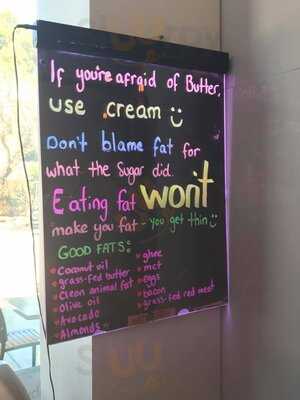 If you're afraid of Butter,
use cream
Don't blame fat for
what the Sugar did.
Eating fat won't
make you fat - you get thin
GOOD FATS:
Coconut oil
grass-fed butter
Clean animal fat
Olive oil
Avocado
Almonds
ghee
mct
eggs
bacon
grass-fed red meat